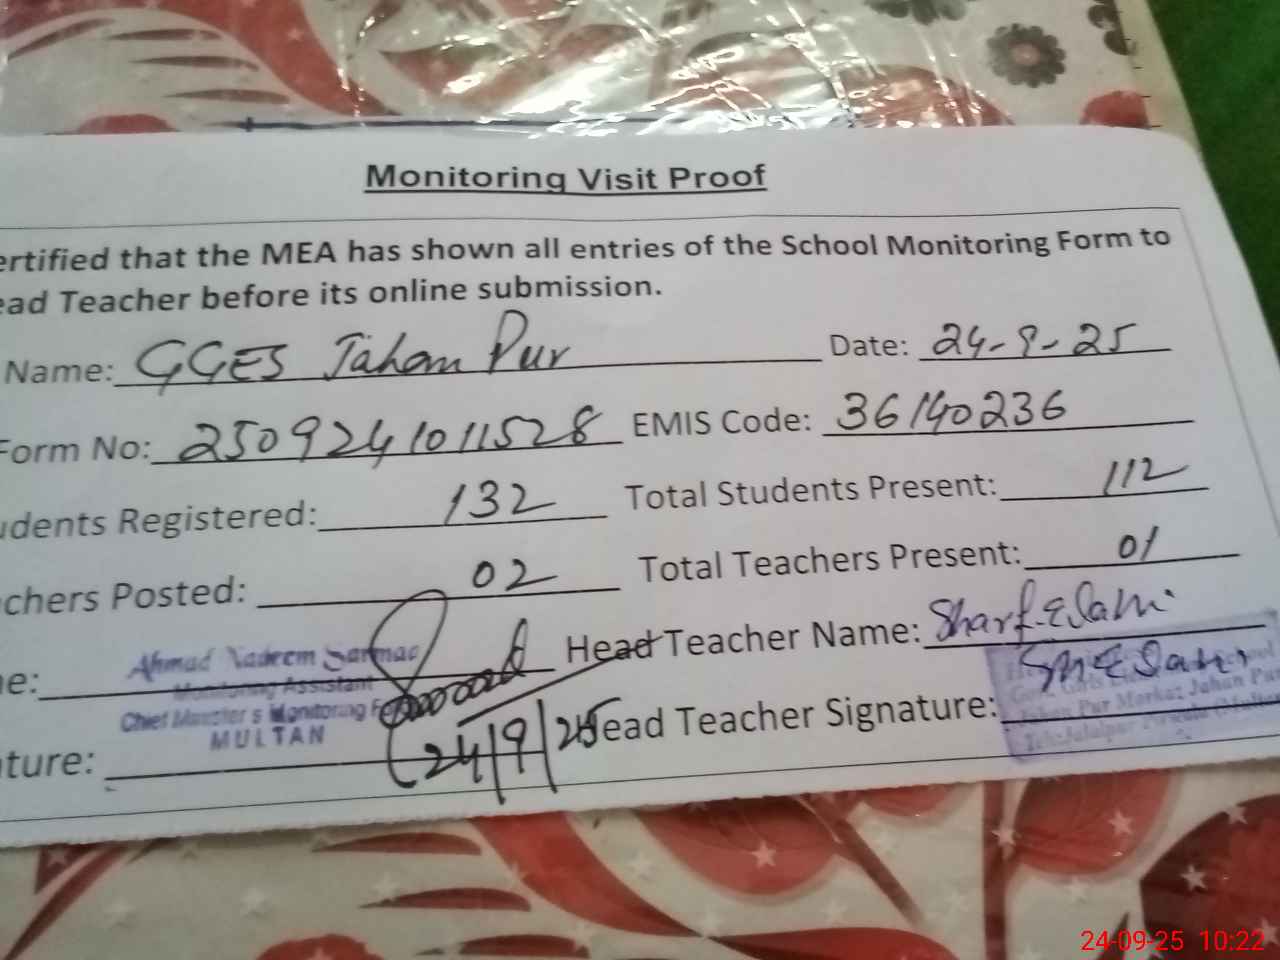 Monitoring Visit Proof
ertified that the MEA has shown all entries of the School Monitoring Form to
ead Teacher before its online submission.
Name: GGES Jahan Pur Date: 24-9-25
Form No: 2509241011528 EMIS Code: 36140236
udents Registered: 132 Total Students Present: 112
chers Posted: 02 Total Teachers Present: 01
e: Ahmad Nadeem Head Teacher Name:
Monitoring Assistant
Chief Minister's Monitoring
MULTAN
ture: 24/9/25 Head Teacher Signature:
School
Jahan Pur Markaz Jahan Pur
24-09-25 10:22